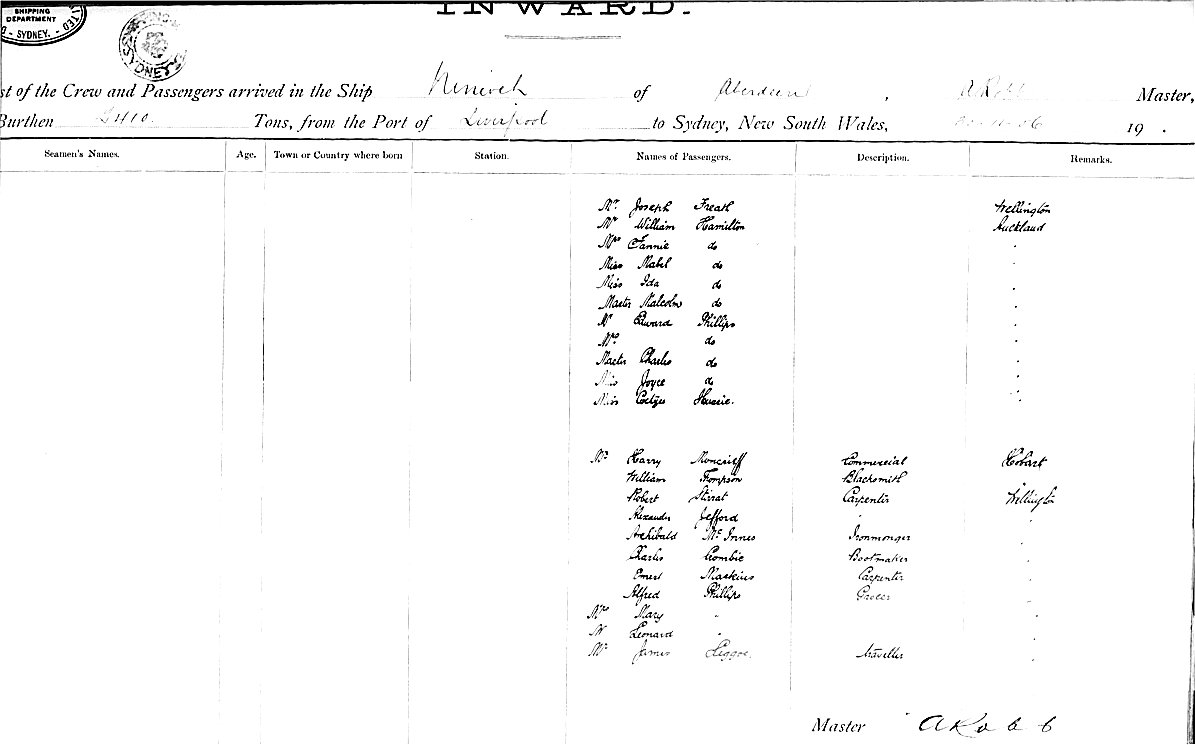 SHIPPING
DEPARTMENT
- SYDNEY. -
SYDNEY
INWARD.
st of the Crew and Passengers arrived in the Ship Nineveh of Aberdeen, A Robb Master,
Burthen 2410 Tons, from the Port of Liverpool to Sydney, New South Wales, 19 .
Seamen's Names. Age. Town or Country where born Station. Names of Passengers. Description. Remarks.
Mr Joseph Freath Wellington
Mr William Hamilton Auckland
Mrs Fannie do "
Miss Mabel do "
Miss Ida do "
Master Malcolm do "
Mr Edward Phillips "
Mrs do "
Master Charles do "
Miss Joyce do "
Miss "
Mr Harry Moncrieff Commercial Hobart
William Thompson Blacksmith "
Robert Stirrat Carpenter Wellington
Alexander Jefford " "
Archibald McInnes Ironmonger "
Charles Crombie Bootmaker "
Ernest Maskins Carpenter "
Alfred Phillips Grocer "
Mrs Mary " "
Mr Leonard " "
Mr James Heggie. traveller "
Master A Robb